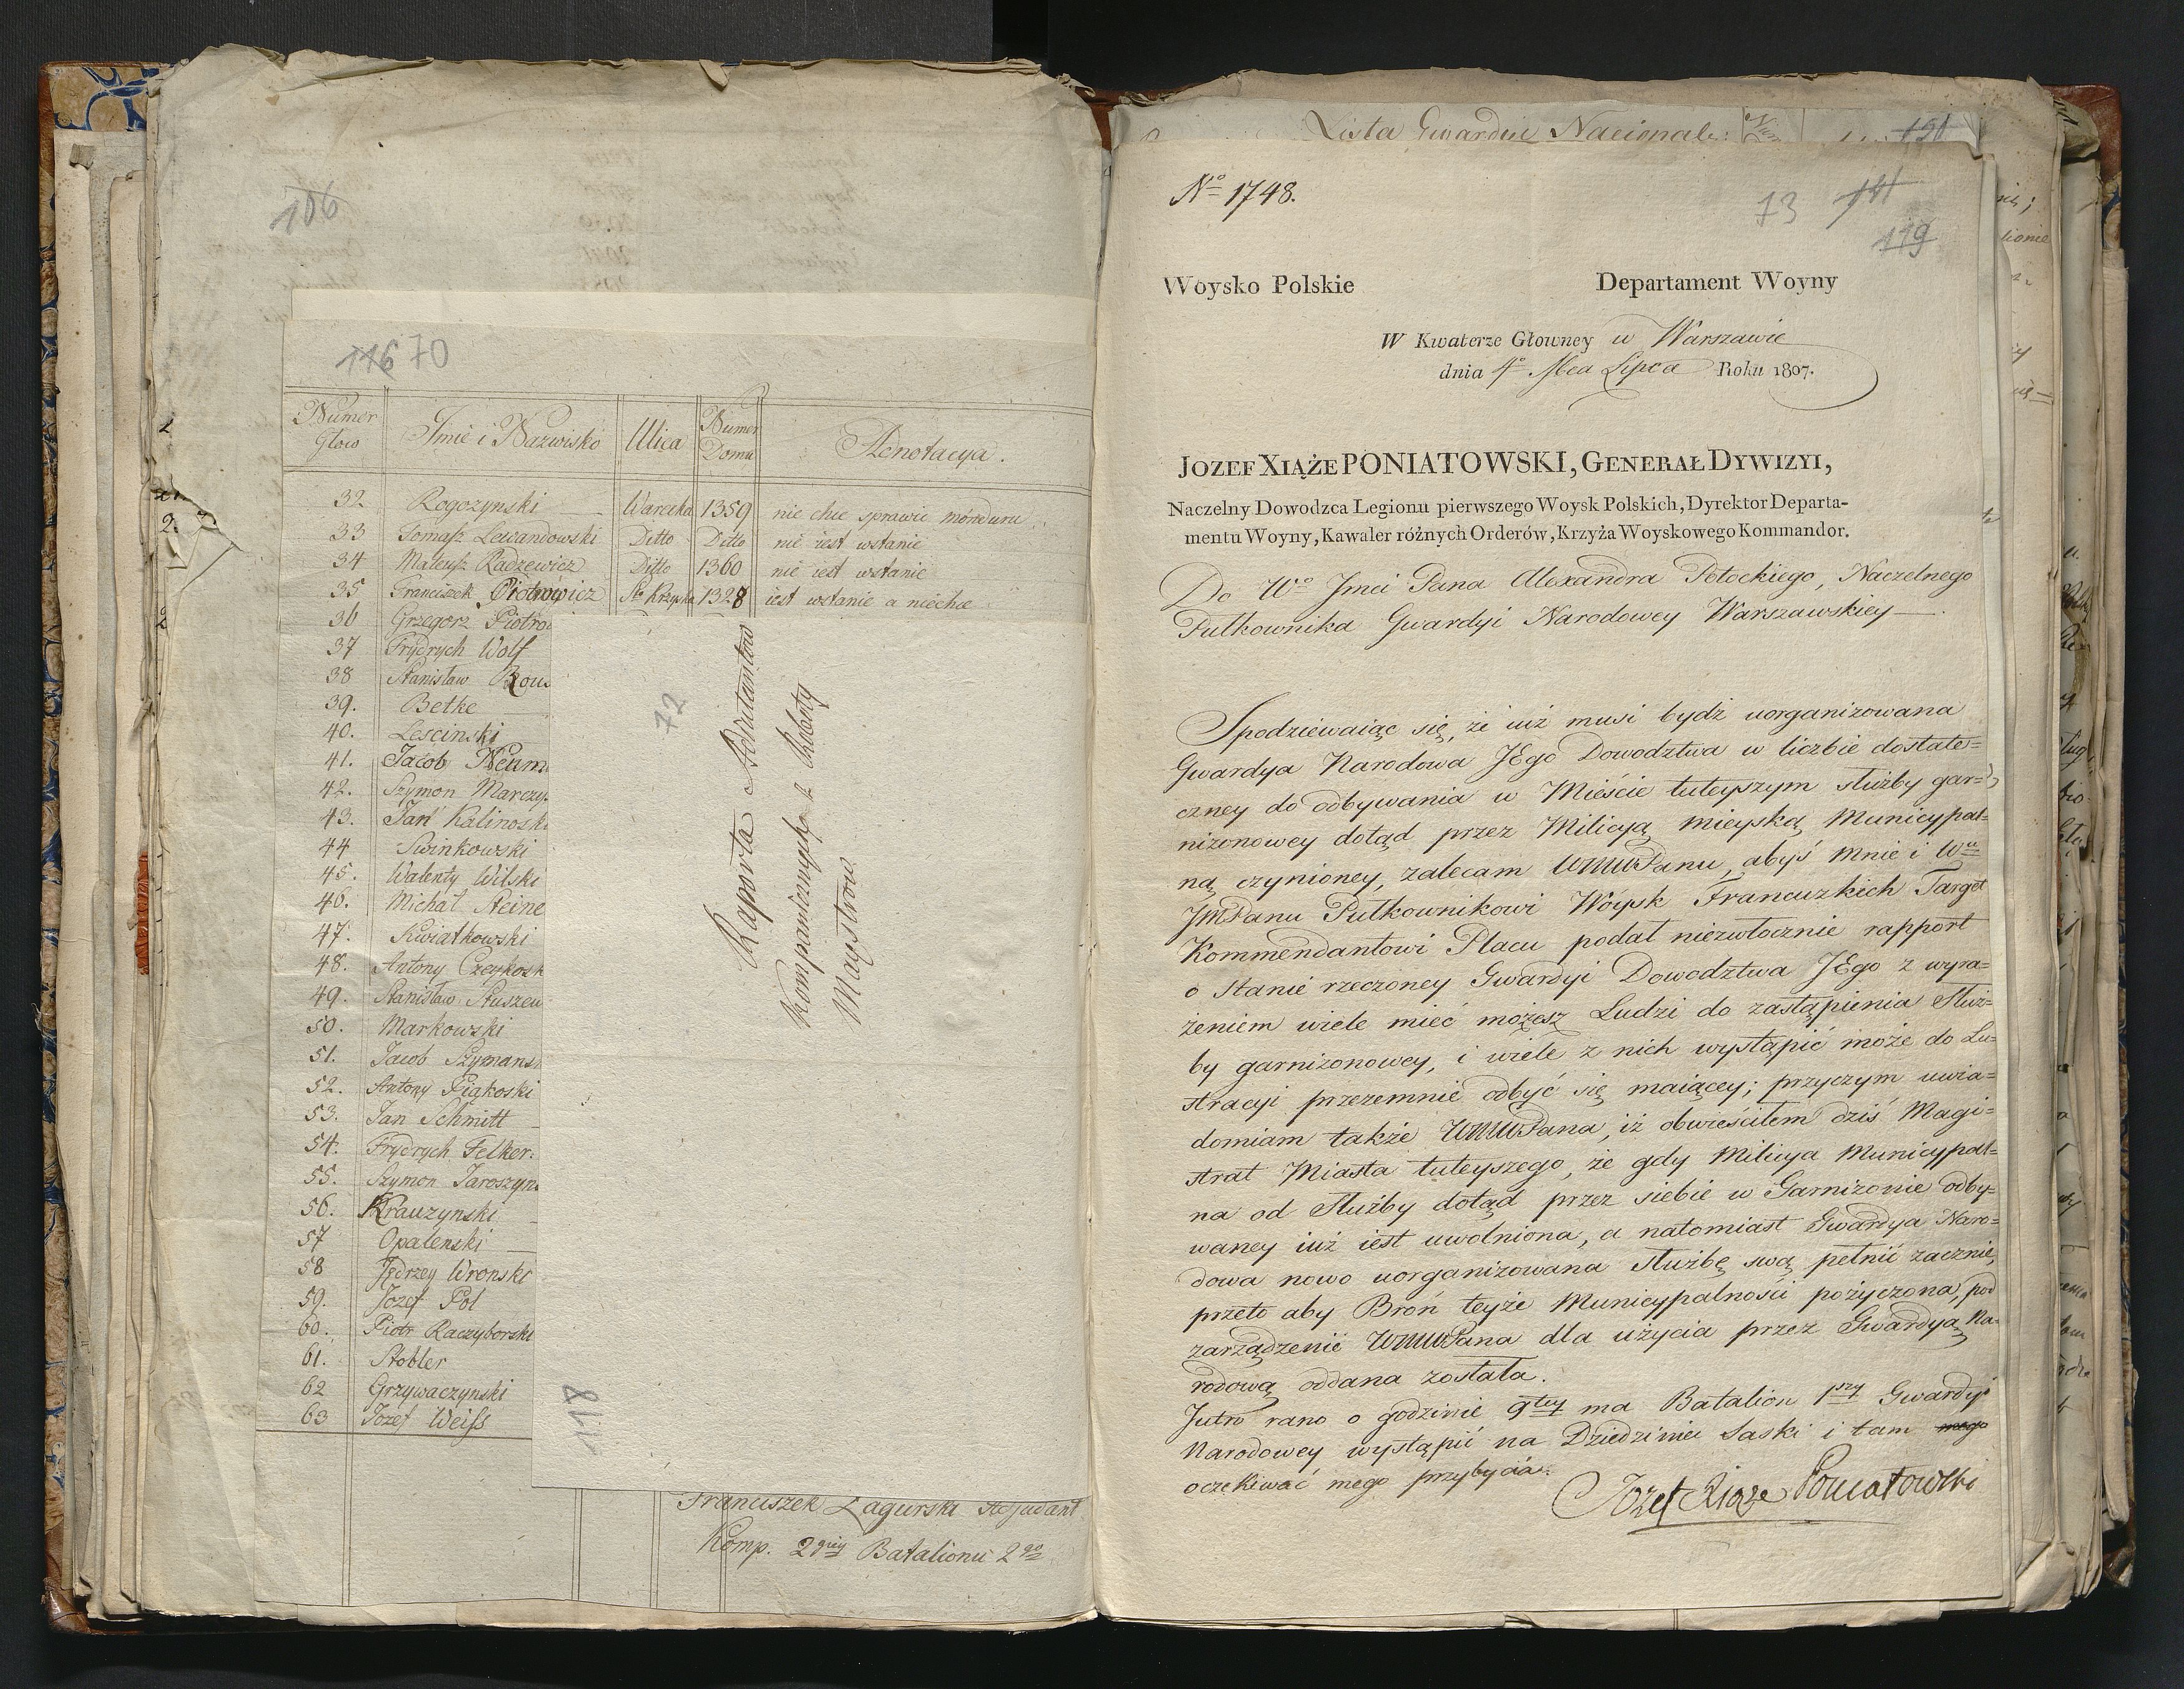 106
116 70
Numer Głow Imie i Nazwisko Ulica Numer Domu Adnotacya.
32 Rogozynski Warecka 1359 nie chce sprawic monduru
33 Tomasz Lewandowski Ditto Ditto nie iest wstanie
34 Mateusz Radzewicz Ditto 1360 nie iest wstanie
35 Franciszek Piotrowicz Sto Krzyska 1328 iest wstanie a niechce
36 Grzegorz Piotro
37 Frydrych Wolf
38 Stanisław
39. Betke
40. Lescinski
41. Jacob Neum
42. Szymon Marczy
43. Jan Kalinosk
44 Swinkowski
45. Walenty Wilski
46. Michał Steine
47. Kwiatkowski
48. Antony Czeykosk
49. Stanisław Stuszew
50. Markowski
51. Jacob Szymans
52. Antony Piąkoski
53. Jan Schmitt
54. Frydrych Felker
55. Szymon Jaroszyn
56. Krauzynski
57 Opalenski
58 Jędrzey Wronski
59. Jozef Pol
60. Piotr Raczyborski
61. Stobler
62 Grzywaczynski
63 Jozef Weiss
72
Raporta Adiutantow
Kompanicznych z Roboty
Maystrow
118
Franciszek Zagurski Adjudant
Komp. 2giey Batalionu 2go
Lista Gwardie Nacionale
No 1748.
73 141
119
Woysko Polskie Departament Woyny
W Kwaterze Głowney w Warszawie
dnia 4o Mca Lipca Roku 1807.
JOZEF XIĄŻE PONIATOWSKI, GENERAŁ DYWIZYI,
Naczelny Dowodzca Legionu pierwszego Woysk Polskich, Dyrektor Departa-
mentu Woyny, Kawaler różnych Orderów, Krzyża Woyskowego Kommandor.
Do Wo Jmci Pana Alexandra Potockiego, Naczelnego
Pułkownika Gwardyi Narodowey Warszawskiey
Spodziewaiąc się, że iuż musi bydź uorganizowana
Gwardya Narodowa JEgo Dowodztwa w liczbie dostate=
czney do odbywania w Mieście tuteyszym służby gar=
nizonowey dotąd przez Milicyą mieyską Municypal=
ną czynioney, zalecam WMWPanu, abyś mnie i Wu
JMPanu Pułkownikowi Woysk Francuzkich Target
Kommendantowi Placu podał niezwłocznie rapport
o stanie rzeczoney Gwardyi Dowodztwa JEgo z wyra=
żeniem wiele mieć możesz Ludzi do zastąpienia Służ=
by garnizonowey, i wiele z nich wystąpić może do Lu=
stracyi przezemnie odbyć się maiącey; przyczym uwia=
domiam także WMWPana, iż obwieściłem dziś Magi=
strat Miasta tuteyszego, że gdy Milicya Municypal=
na od Służby dotąd przez siebie w Garnizonie odby=
waney iuż iest uwolniona, a natomiast Gwardya Naro=
dowa nowo uorganizowana służbę swą pełnić zacznie,
przeto aby Broń teyże Municypalności pożyczona, pod
zarządzenie WMWPana dla użycia przez Gwardyą Na=
rodową oddana została.
Jutro rano o godzinie 9tey ma Batalion 1szy Gwardyi
Narodowey wystąpić na Dziedziniec Saski i tam mego
oczekiwać mego przybycia.
Jozef Xiąże Poniatowski